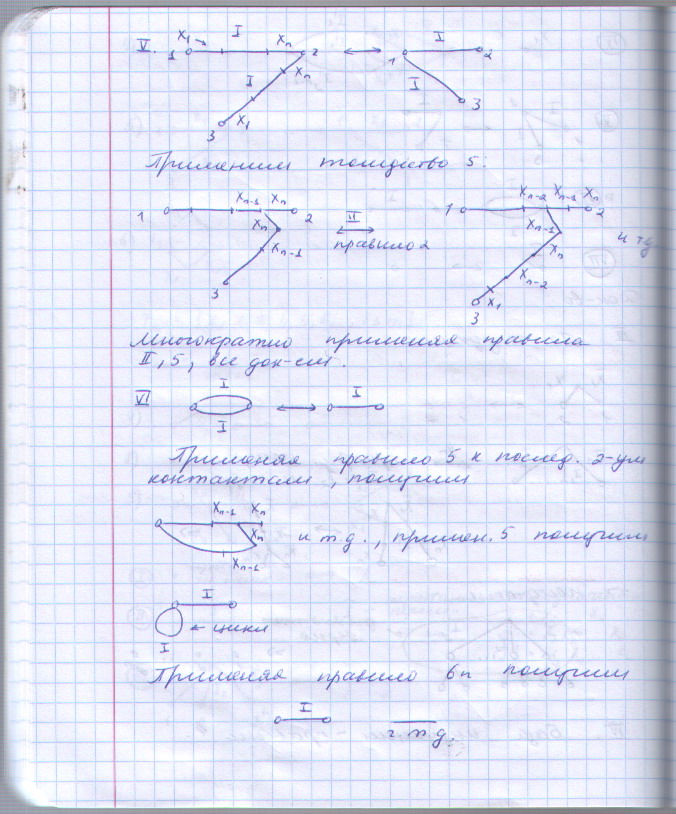 V. 1 X₁ I Xₙ 2 ↔ 1 I 2
I Xₙ I
X₁ 3
3
Применим тождество 5:
1 Xₙ₋₁ Xₙ 2 II ↔ 1 Xₙ₋₂ Xₙ₋₁ Xₙ 2
Xₙ правило 2 Xₙ₋₁ и тд
Xₙ₋₁ Xₙ
Xₙ₋₂
3 X₁
3
Многократно применяя правила
II, 5, все док-ем.
VI I ↔ I
I
Применяя правило 5 к послед. 2-ум
контактам, получим
Xₙ₋₁ Xₙ
Xₙ и т.д., примен. 5 получим
Xₙ₋₁
I
← цикл
I
Применяя правило 6п получим
I
ч т д.